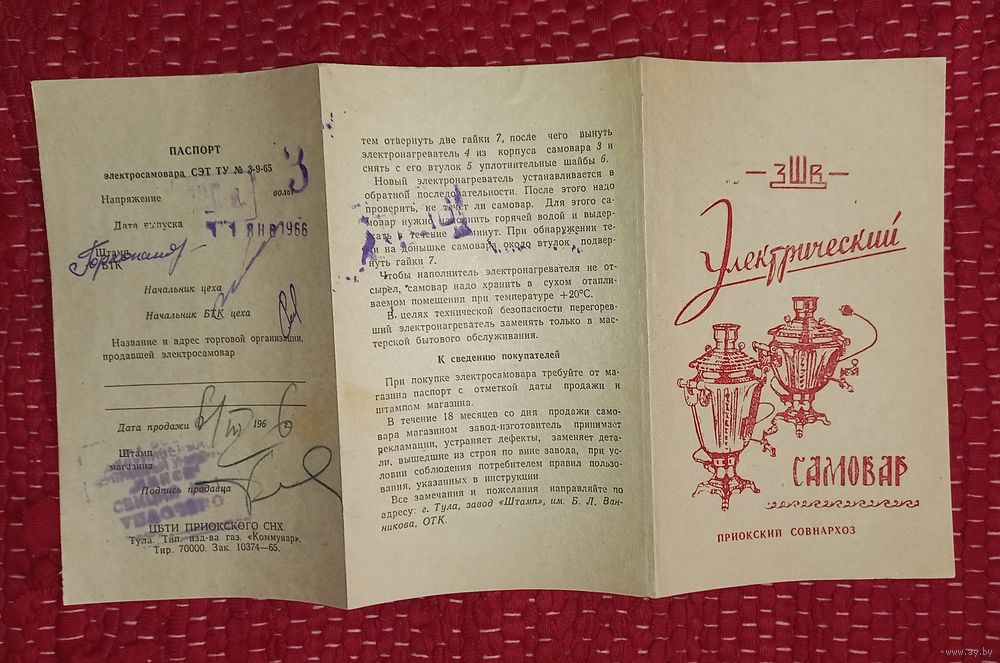 ПАСПОРТ
электросамовара СЭТ ТУ № 3-9-65
Напряжение вольт
Дата выпуска 11 ЯНВ 1966
Штамп
БТК
Начальник цеха
Начальник БТК цеха
Название и адрес торговой организации,
продавшей электросамовар
Дата продажи 6/VII 1966 г.
Штамп
магазина
Подпись продавца
ЦБТИ ПРИОКСКОГО СНХ
Тула. Тип. изд-ва газ. «Коммунар».
Тир. 70000. Зак. 10374—65.
тем отвернуть две гайки 7, после чего вынуть
электронагреватель 4 из корпуса самовара 3 и
снять с его втулок 5 уплотнительные шайбы 6.
Новый электронагреватель устанавливается в
обратной последовательности. После этого надо
проверить, не течет ли самовар. Для этого са-
мовар нужно наполнить горячей водой и выдер-
жать в течение минут. При обнаружении те-
чи на донышке самовара около втулок подвер-
нуть гайки 7.
Чтобы наполнитель электронагревателя не от-
сырел, самовар надо хранить в сухом отапли-
ваемом помещении при температуре +20°С.
В целях технической безопасности перегорев-
ший электронагреватель заменять только в мас-
терской бытового обслуживания.
К сведению покупателей
При покупке электросамовара требуйте от ма-
газина паспорт с отметкой даты продажи и
штампом магазина.
В течение 18 месяцев со дня продажи само-
вара магазином завод-изготовитель принимает
рекламации, устраняет дефекты, заменяет дета-
ли, вышедшие из строя по вине завода, при ус-
ловии соблюдения потребителем правил пользо-
вания, указанных в инструкции.
Все замечания и пожелания направляйте по
адресу: г. Тула, завод «Штамп», им. Б. Л. Ван-
никова, ОТК.
ЗШВ
Электрический
САМОВАР
ПРИОКСКИЙ СОВНАРХОЗ
www.ay.by